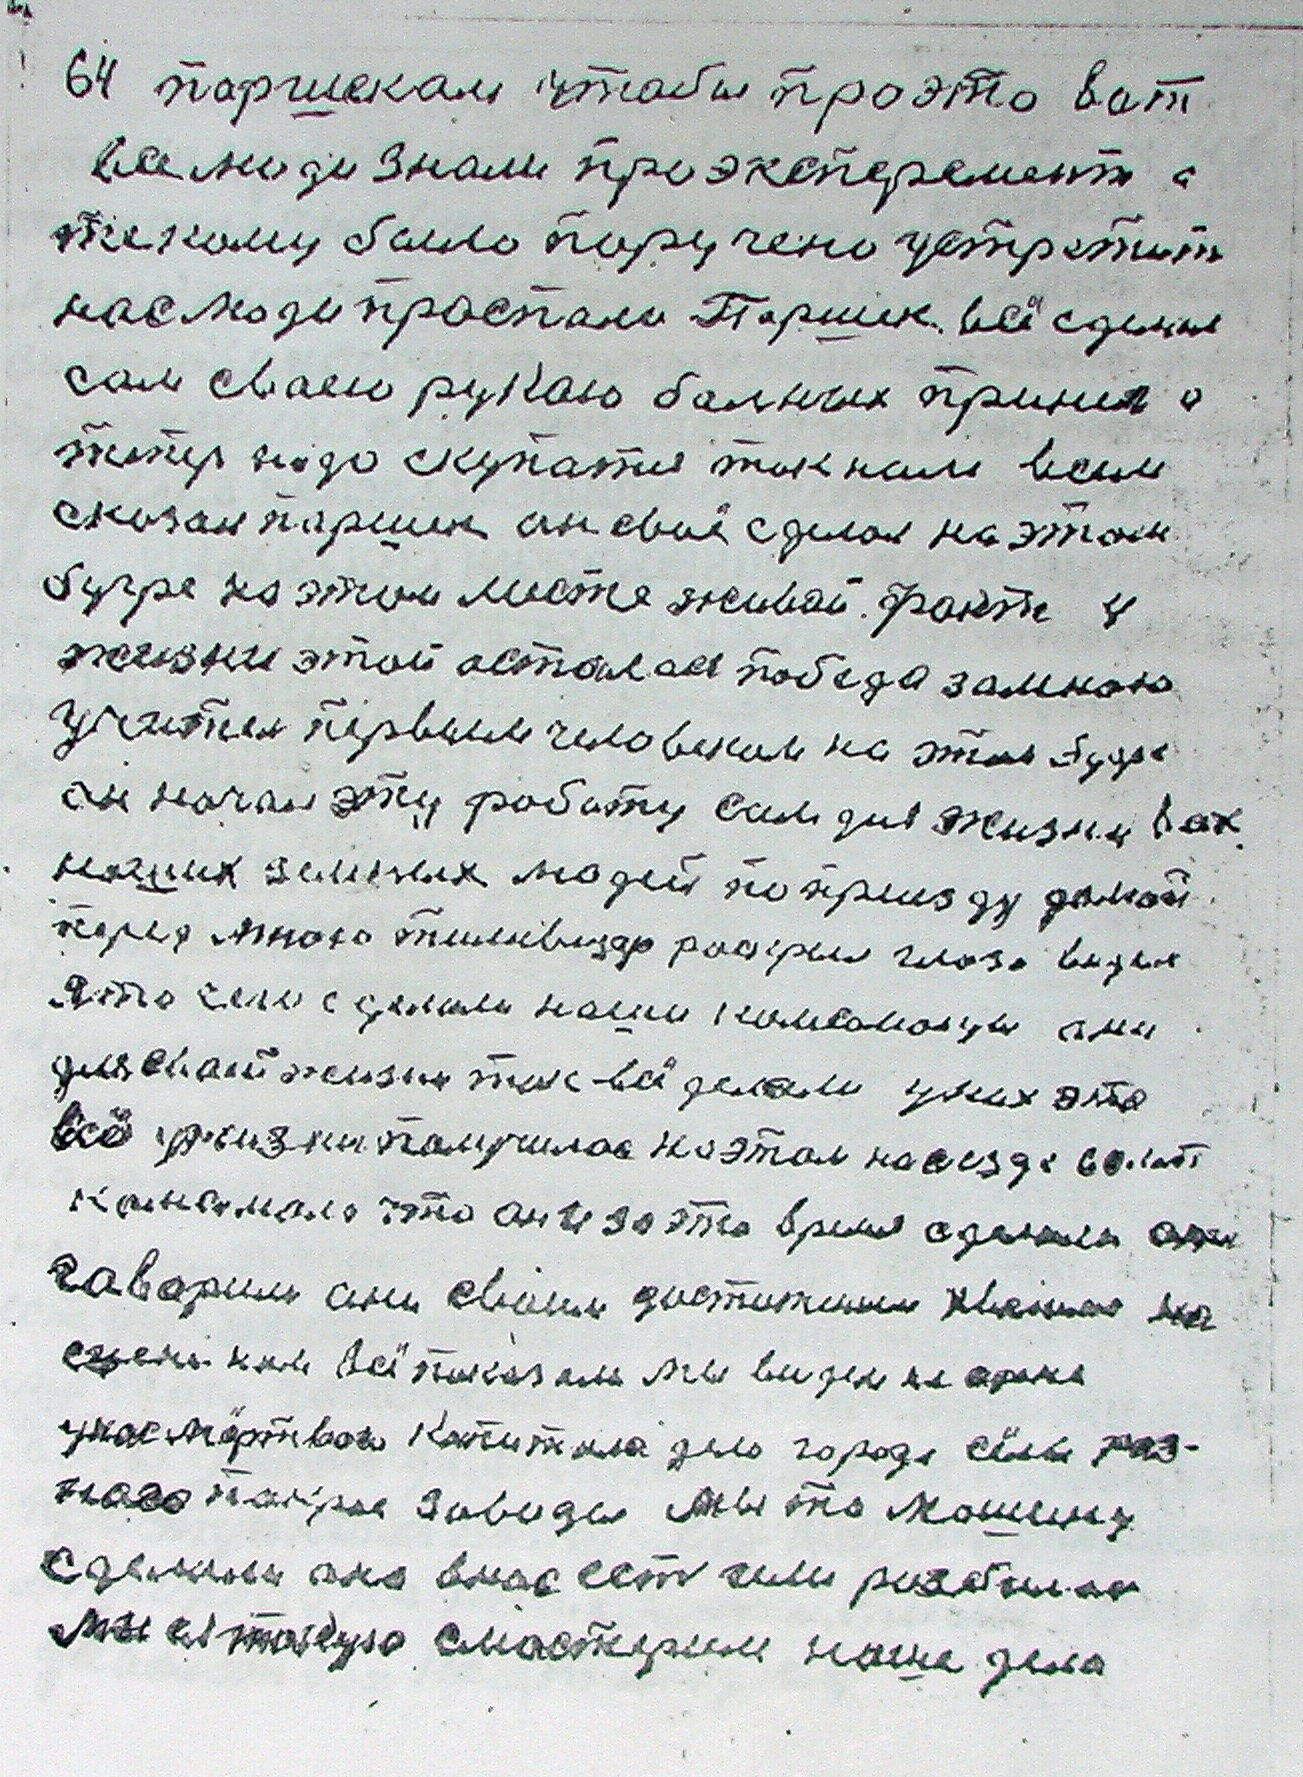 64 паршекам штабы проэто вот
все люди знали про эксперемент а
текому было поручено устретит
нас люди проспали Паршек всё сделал
сам сваею рукаю балных принял а
тепер надо скупатся так нам всем
сказал паршек он своё сделал на этом
бугре на этом месте живой факт у
жизни этой осталася победа замною
учител первым человеком на этом бугре
он начал эту работу сам для жизни всех
наших земных людей по приезду домой
перед мною тиливизор раскрыл глаза видел
я то чего сделали наши комсомольцы они
для сваей жизни так всё делали у них это
всё у жизни получилас на этом насезде 60 лет
комсамола что они за это время сделали они
гаварили они своим достижением на
сцене нам всё показали мы видели
у нас мёртвого капитала дело города сёлы раз-
ного заводы мы то машину
сделали она внас ест или разбилас
мы смастерим наше дела